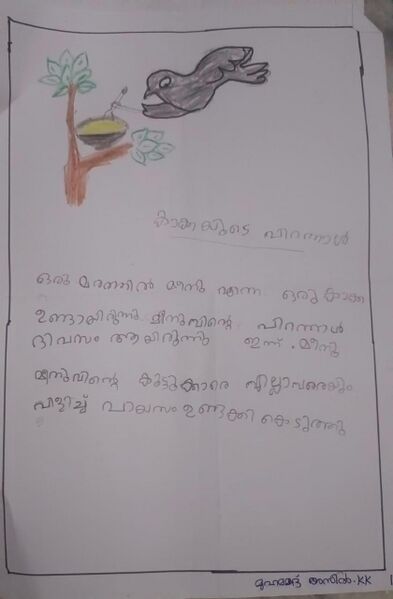 കാക്കയുടെ പിറന്നാൾ
ഒരു മരത്തിൽ മീനു എന്ന ഒരു കാക്ക
ഉണ്ടായിരുന്നു മീനുവിന്റെ പിറന്നാൾ
ദിവസം ആയിരുന്നു ഇന്ന് . മീനു
മീനുവിന്റെ കൂട്ടുക്കാരെ എല്ലാവരെയും
വിളിച്ച് പായസം ഉണ്ടക്കി കെടുത്തു
മുഹമ്മദ് അസീൽ.KK